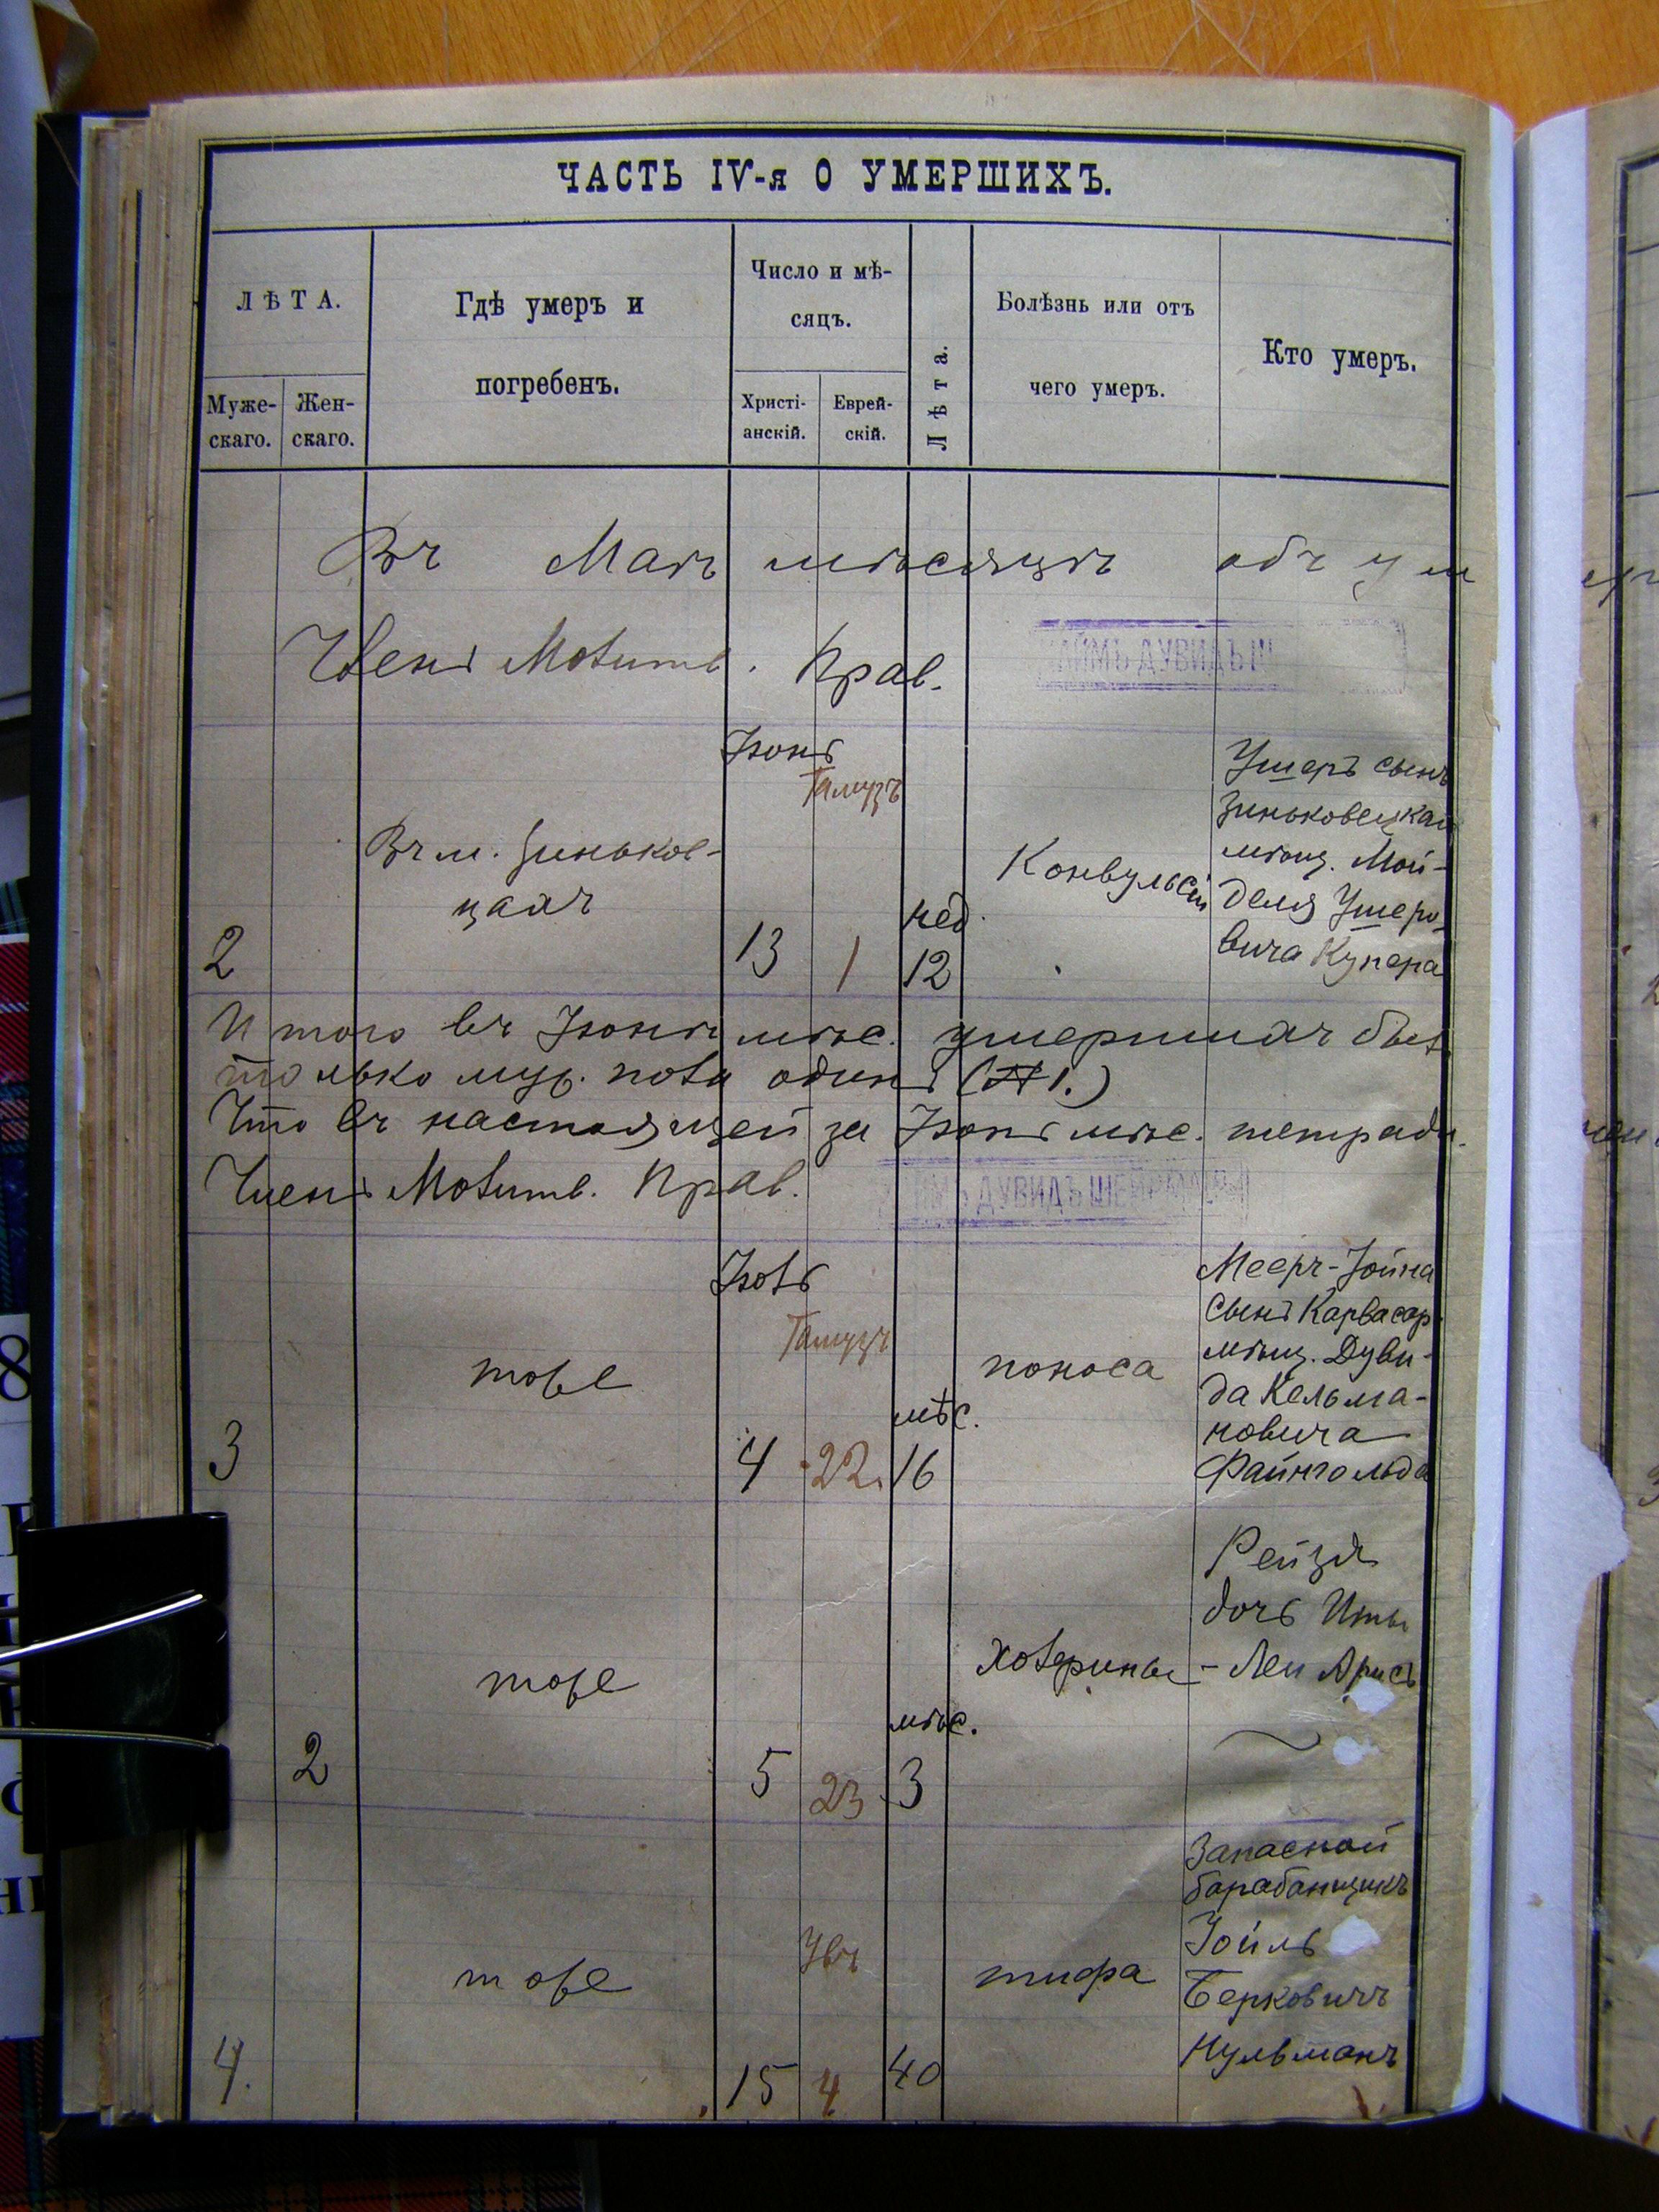 ЧАСТЬ IV-я О УМЕРШИХЪ.
ЛѢТА.
Муже-
скаго.
Жен-
скаго.
Гдѣ умеръ и
погребенъ.
Число и мѣ-
сяцъ.
Христі-
анскій.
Еврей-
скій.
Лѣта.
Болѣзнь или отъ
чего умеръ.
Кто умеръ.
Въ Маѣ мѣсяцѣ объ ум
Членъ Молитв. Прав.
АЙМЪ ДУВИДЪ Ш
Іюнь
Тамузъ
Въ м. Зиньков-
цахъ
2
13
1
нед.
12
Конвульсіи
Ушеръ сынъ
Зиньковецкаго
мѣщ. Мой-
деля Ушеро-
вича Купера
Итого въ Іюнѣ мѣс. умершихъ былъ
только муж. пола одинъ (№ 1.)
Что въ настоящей за Іюнь мѣс. тетради.
Членъ Молитв. Прав.
МЪ ДУВИДЪ ШЕЙ
Іюль
Тамузъ
тоже
3
4
22
мѣс.
16
поноса
Мееръ-Іойна
сынъ Карвасар
мѣщ. Дуви-
да Кельма-
новича
Файнгольда
тоже
2
5
23
мѣс.
3
Холерины
Рейзя
дочь Иты
-Леи Арись
тоже
4.
15
Увъ
4
40
тифа
Запасной
барабанщикъ
Іойль
Берковичъ
Нульманъ